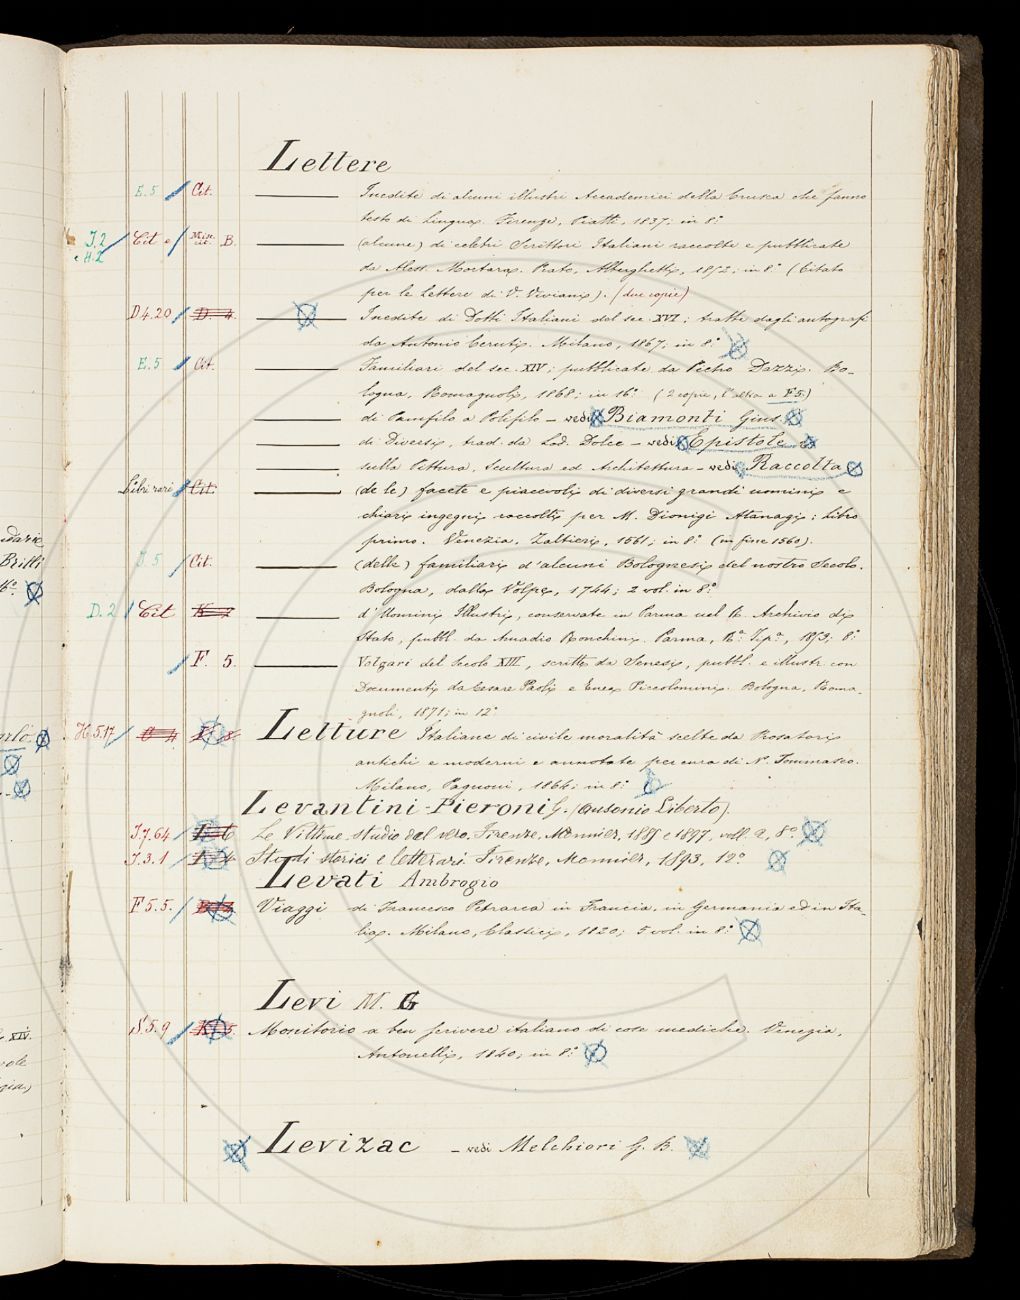 Lettere
E. 5 Cit. Inedite di alcuni illustri Accademici della Crusca che fanno
testo di Lingua. Firenze, Piatti, 1837; in 8°
I.2 e H.2 Cit e Misc. cit. B. (alcune) di celebri Scrittori Italiani raccolte e pubblicate
da Aless. Mortara. Prato, Alberghetti, 1852; in 8° (Citato
per le Lettere di V. Viviani). (due copie)
D 4.20 Inedite di Dotti Italiani del sec. XVI; tratte dagli autografi
da Antonio Ceruti. Milano, 1867. in 8°
E. 5 Cit. Familiari del sec. XIV; pubblicate da Pietro Dazzi. Bo-
logna, Romagnoli, 1868; in 16° (2 copie, l'altra a F5.)
di Panfilo a Polifilo - vedi Biamonti Gius.
di Diversi, trad. da Lod. Dolce - vedi Epistole
sulla Pittura, Scultura ed Architettura - vedi Raccolta
Libri rari Cit. (de le) facete e piacevoli di diversi grandi uomini e
chiari ingegni raccolte per M. Dionigi Atanagi; libro
primo. Venezia, Zaltieri, 1561; in 8° (in fine 1560).
I. 5 Cit. (delle) familiari d'alcuni Bolognesi del nostro Secolo.
Bologna, dalla Volpe, 1744; 2 vol. in 8°
D. 2 Cit d'Uomini Illustri, conservate in Parma nel R. Archivio dello
Stato, pubbl. da Amadio Ronchini. Parma, R.ª Tip.ª, 1853; 8°
F. 5. Volgari del Secolo XIII, scritte da Senesi, pubbl. e illustr. con
Documenti da Cesare Paoli e Enea Piccolomini. Bologna, Roma-
gnoli, 1871; in 12°
H.5.17 Letture Italiane di civile moralità scelte da Prosatori
antichi e moderni e annotate per cura di N. Tommaseo.
Milano, Pagnoni, 1864; in 8°
Levantini-Pieroni G. (Ausonio Liberto).
I.7.64 Le Vittime studio dal vero. Firenze, Monnier, 1889 e 1897, voll. 2, 8°
I.3.1 Studi storici e letterari. Firenze, Monnier, 1893, 12°
Levati Ambrogio
F 5.5. Viaggi di Francesco Petrarca in Francia, in Germania ed in Ita-
lia. Milano, Classici, 1820; 5 vol. in 8°
Levi M. G
S 5.9 Monitorio a ben scrivere italiano di cose mediche. Venezia,
Antonelli, 1840; in 8°
Levizac - vedi Melchiori G. B.